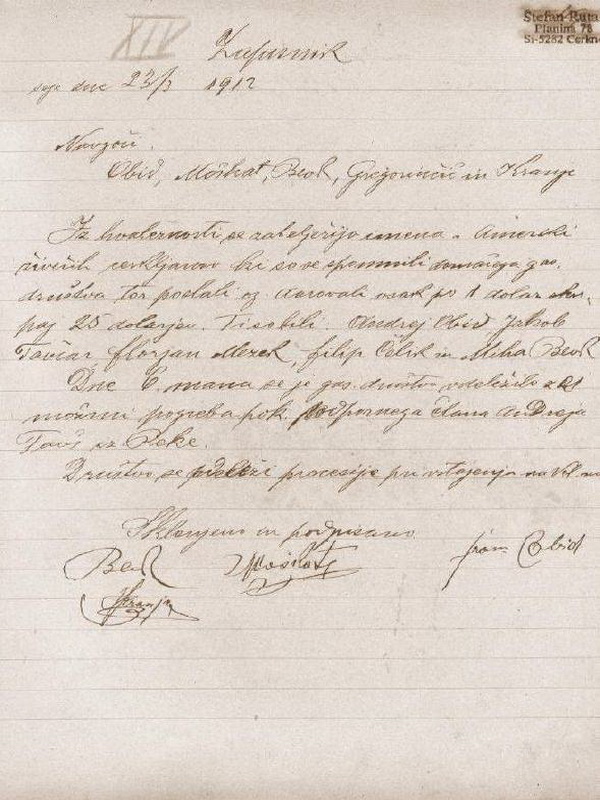 XIV
Štefan Ruta
Planina 78
SI-5282 Cerkno
Zapisnik
seje dne 23/3 1912
Navzoči.
Obid, Möškat, Beok, Gregorčič in Kranje
Iz hvaležnosti se zabeležijo imena v Ameriki
živečih cerkljanov ki so se spomnili domačega gas.
društva ter poslali oz darovali vsak po 1 dolar sku-
paj 25 dolarjev. Ti so bili. Andrej Obid Jakob
Tavčar Florjan Mezek, Filip Čelik in Miha Beok
Dne 6. marca se je gas. društvo vdeležilo z 21
možmi pogreba pok. podpornega člana Andreja
Tavč iz Reke.
Društvo se vdeleži procesije pri vstajenju na Vel.
Sklenjeno in podpisano
Beok Möškat Obid
Kranje